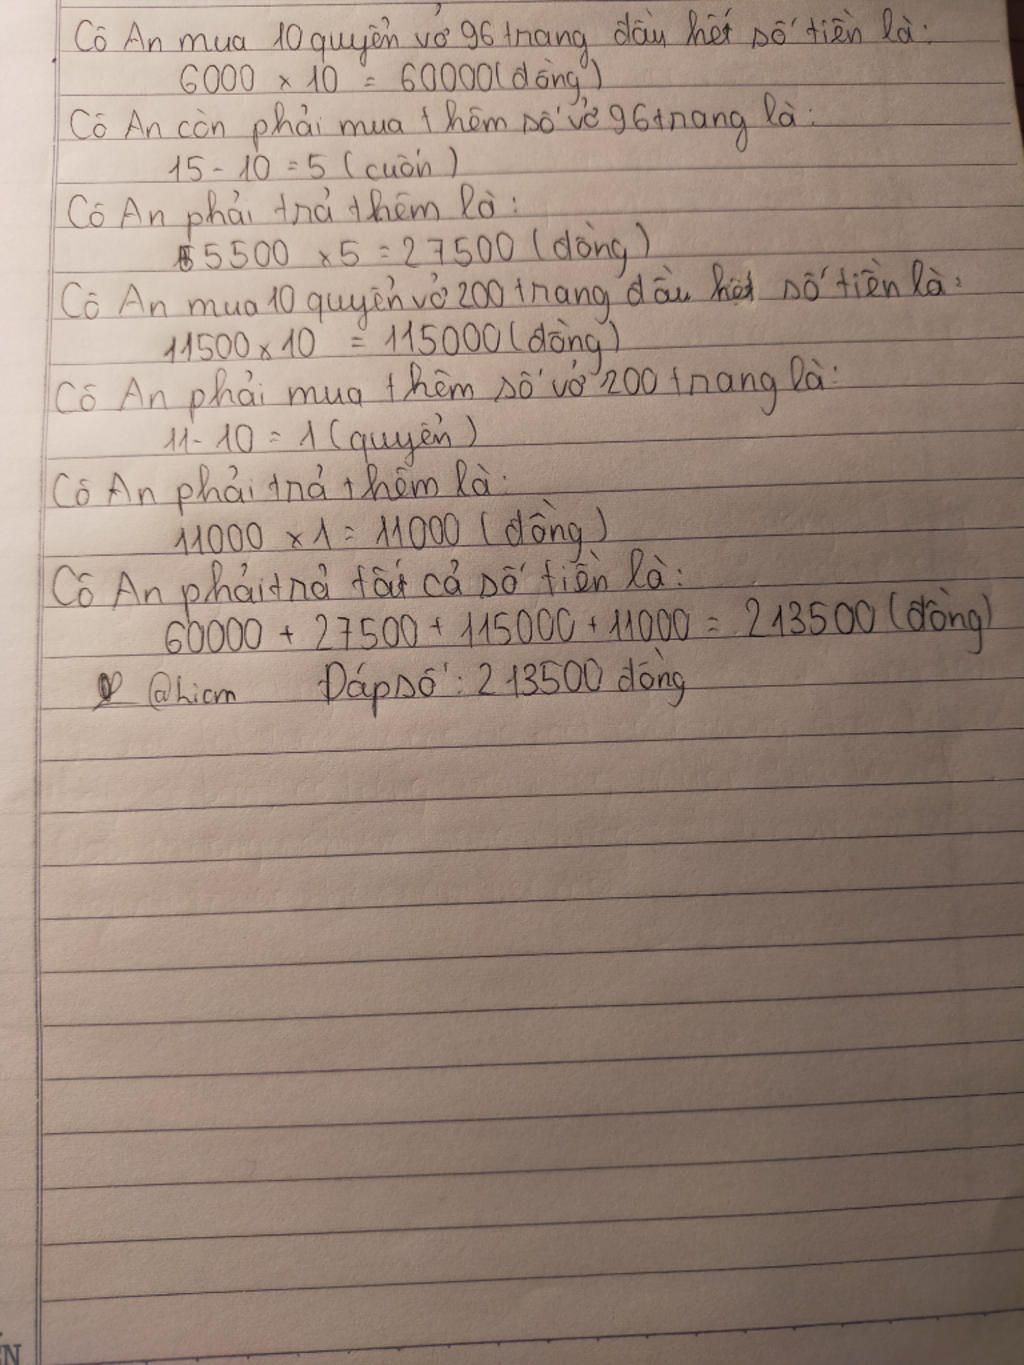 Cô An mua 10 quyển vở 96 trang đầu hết số tiền là:
6000 x 10 = 60000 (đồng)
Cô An còn phải mua thêm số vở 96 trang là:
15 - 10 = 5 (cuốn)
Cô An phải trả thêm là:
5500 x 5 = 27500 (đồng)
Cô An mua 10 quyển vở 200 trang đầu hết số tiền là:
11500 x 10 = 115000 (đồng)
Cô An phải mua thêm số vở 200 trang là:
11 - 10 = 1 (quyển)
Cô An phải trả thêm là:
11000 x 1 = 11000 (đồng)
Cô An phải trả tất cả số tiền là:
60000 + 27500 + 115000 + 11000 = 213500 (đồng)
Đáp số: 213500 đồng